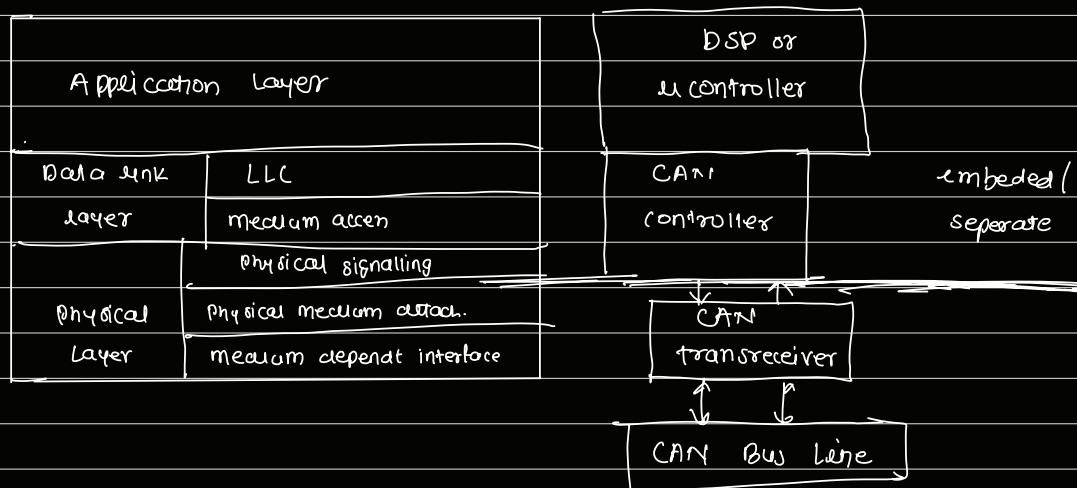 Application Layer
Data link
layer
LLC
medium access
Physical
Layer
physical signalling
physical medium attach.
medium dependt interface
DSP or
μ controller
CAN
controller
embeded/
seperate
CAN
transreceiver
CAN Bus Line